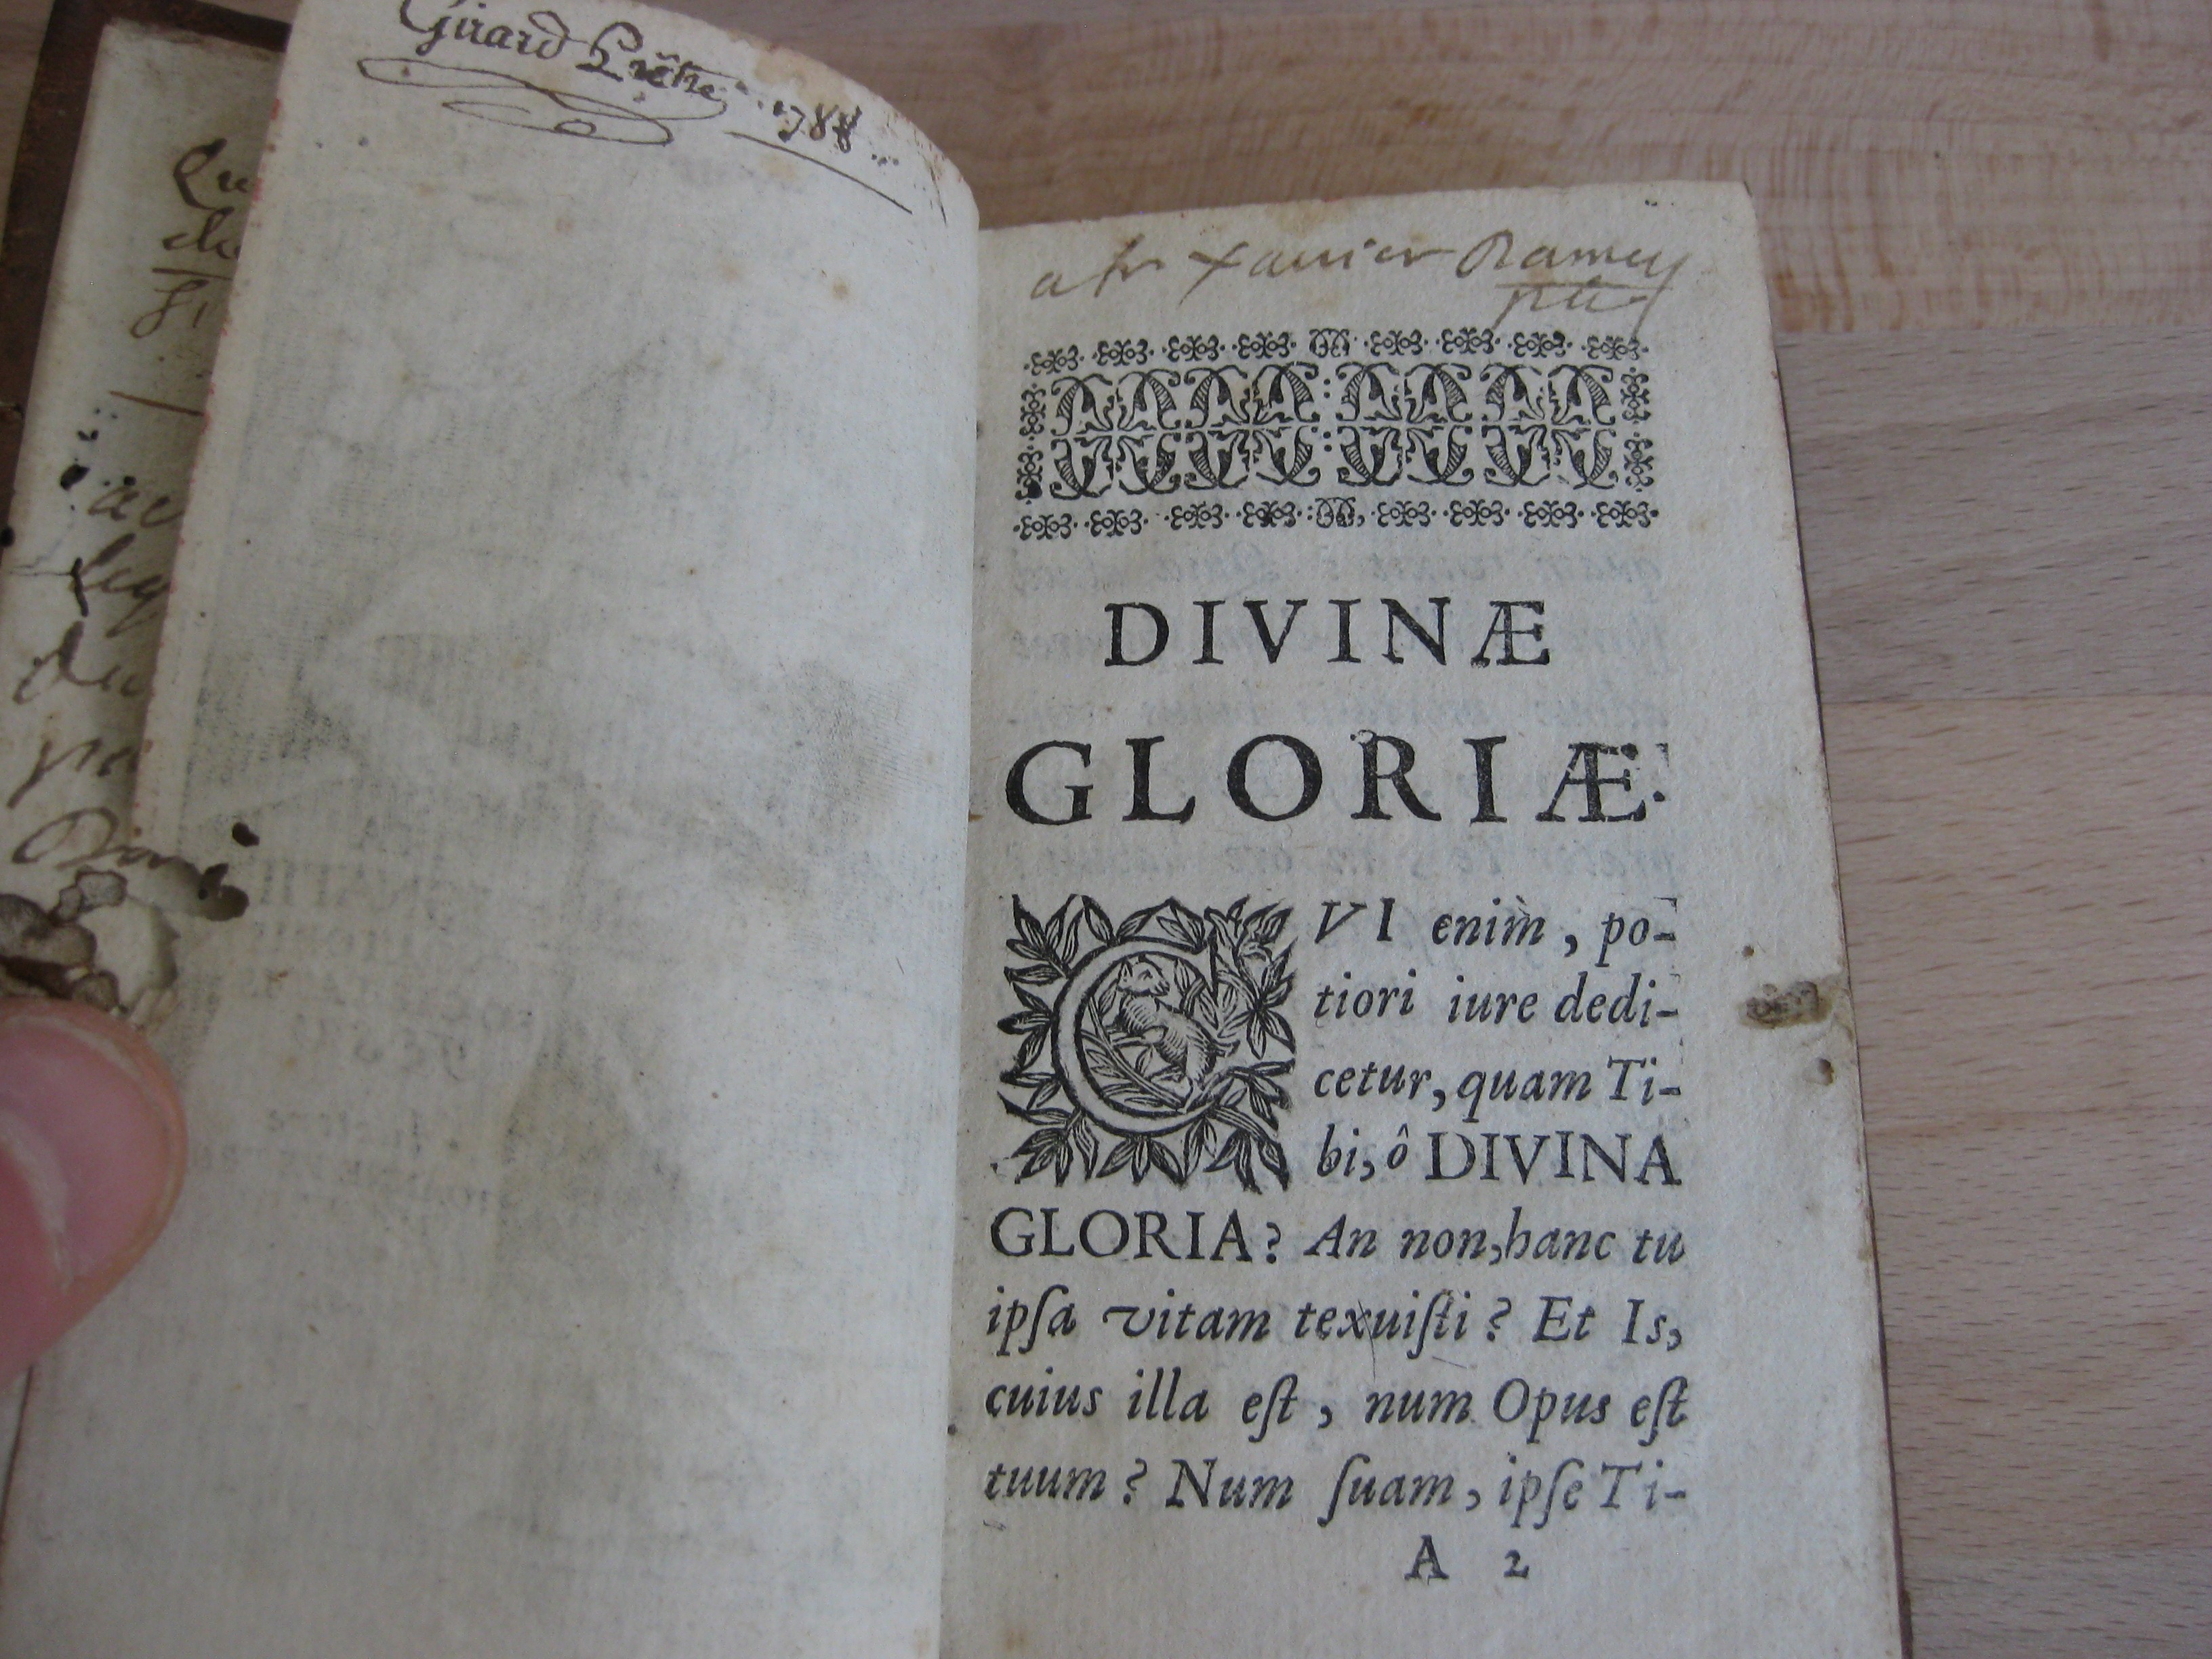 Girard Prêtre 1788
Xauier Ramey
DIVINÆ
GLORIÆ.
CVI enim, po-
tiori iure dedi-
cetur, quam Ti-
bi, ô DIVINA
GLORIA? An non, hanc tu
ipſa vitam texuiſti? Et Is,
cuius illa eſt, num Opus eſt
tuum? Num ſuam, ipſe Ti-
A 2